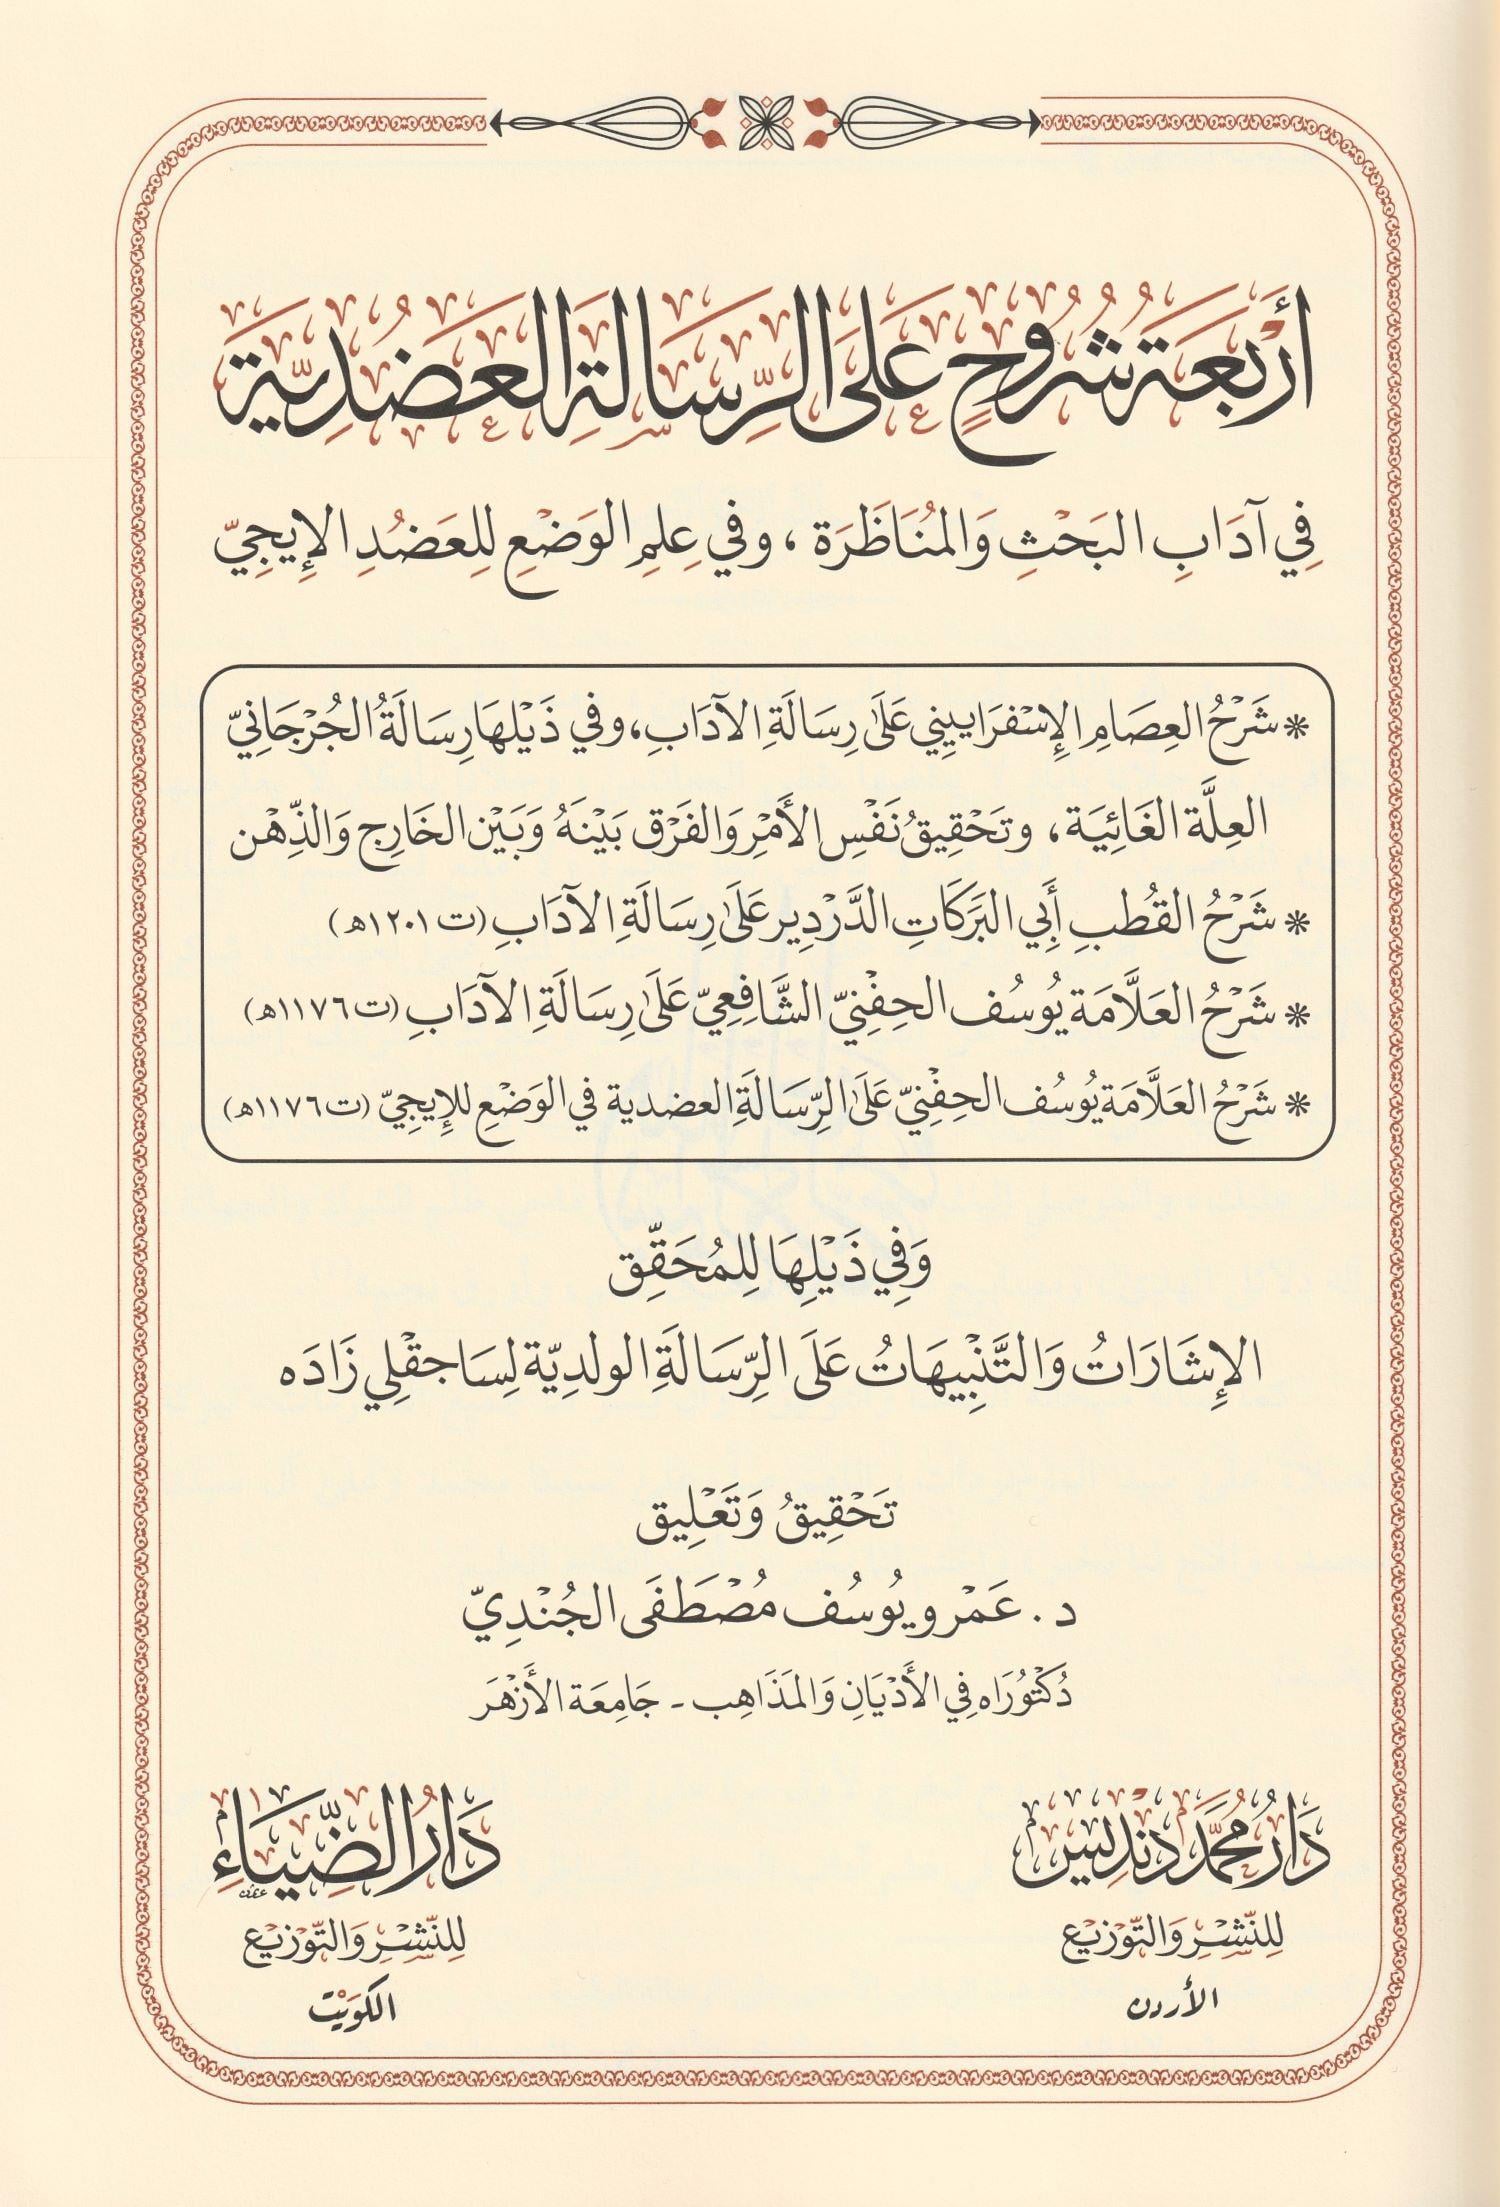 أَرْبَعَةُ شُرُوحٍ عَلَى الرِّسَالَةِ العَضُدِيَّة
فِي آدَابِ البَحْثِ وَالمُنَاظَرَة ، وَفي عِلمِ الوَضْعِ لِلعَضُدِ الإِيجِيّ
* شَرْحُ العِصَامِ الإِسْفرَايِينِي عَلَى رِسَالَةِ الآدَابِ، وَفي ذَيْلِهَا رِسَالَةُ الجُرْجَانِيّ
العِلَّة الغَائِيَة ، وتَحْقِيقُ نَفْسِ الأَمْرِ وَالفَرْق بَيْنَهُ وَبَيْن الخَارِج وَالذِّهْن
* شَرْحُ القُطبِ أَبِي البَرَكَاتِ الدَّرْدِير عَلَى رِسَالَةِ الآدَابِ (ت ١٢٠١هـ)
* شَرْحُ العَلَّامَة يُوسُف الحِفْنِيّ الشَّافِعِيّ عَلَى رِسَالَةِ الآدَابِ (ت ١١٧٦هـ)
* شَرْحُ العَلَّامَة يُوسُف الحِفْنِيّ عَلَى الرِّسَالَةِ العضدية في الوَضْعِ لِلإِيجِيّ (ت ١١٧٦هـ)
وَفِي ذَيْلِهَا لِلمُحَقِّق
الإِشَارَاتُ وَالتَّنْبِيهَاتُ عَلَى الرِّسَالَةِ الولدِيّة لِسَاجقْلِي زَادَه
تَحْقِيقُ وَتَعْلِيق
د. عَمْرو يُوسُف مُصْطَفَى الجُنْدِيّ
دُكْتُورَاه فِي الأَدْيَانِ وَالمَذَاهِب - جَامِعَة الأَزْهَر
دَارُ مُحَمَّد دَنْدِيس
لِلنَّشْرِ وَالتَّوْزِيْع
الأردن
دَارُ الضِّيَاءِ
لِلنَّشْرِ وَالتَّوْزِيْع
الكوَيْت